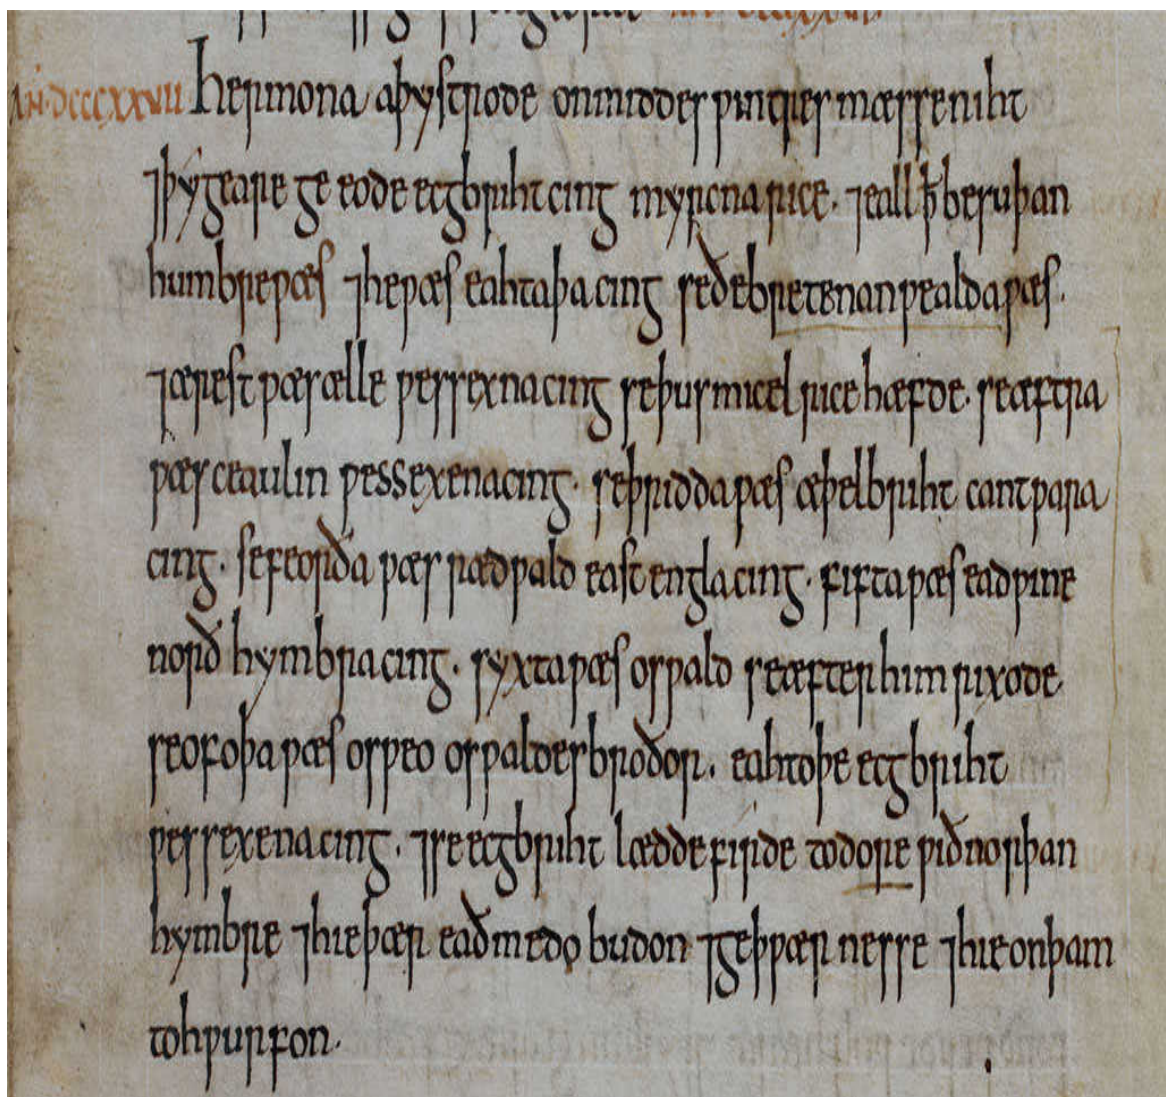 AN·DCCCXXVII Her mona aþystrode on middes ƿintres mæsse niht
⁊ þy geare ge eode ecgbriht cing myrcna rice· ⁊ eall ꝥ be suþan
humbre ƿæs ⁊ he ƿæs eahtaþa cing se ðe bretenanƿealda ƿæs·
⁊ ærest ƿæs ælle ƿessexna cing se þus micel rice hæfde· se æftra
ƿæs ceaulin ƿessexena cing· se þridda ƿæs æþelbriht cantƿara
cing· se feorða ƿæs rædƿald east engla cing· fifta ƿæs eadƿine
norð hymbra cing· syxta ƿæs osƿald se æfter him rixode·
seofoþa ƿæs osƿeo osƿaldes broðor· eahtoþe ecgbriht
ƿessexena cing· ⁊ se ecgbriht lædde firde to dore ƿið norþan
hymbre ⁊ hie þær eaðmedo budon ⁊ geþƿærnesse ⁊ hie on þam
tohƿurfon·